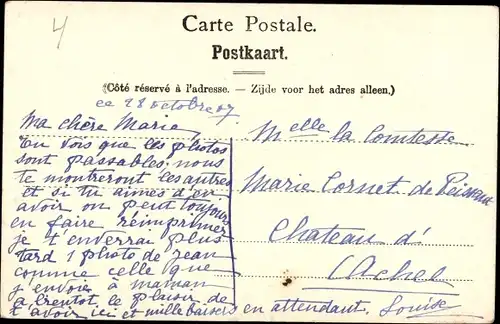 4
Carte Postale.
Postkaart.
(Côté réservé à l'adresse. — Zijde voor het adres alleen.)
ce 28 octobre 07
Ma chère Marie
Tu vois que les photos
sont passables. nous
te montreront les autres
et si tu aimes d'en
avoir on peut toujours
en faire réimprimer
je t enverrai plus
tard 1 photo de Jean
comme celle que
j'envoie à maman
a bientot le plaisir de
t'avoir ici et mille baisers en attendant. Louise
Melle la Comtesse
Marie Cornet de
Chateau d'
Achel